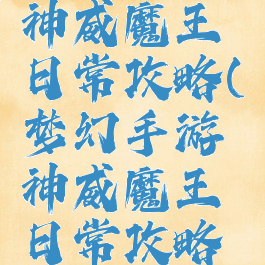 神威魔王
日常攻略(
梦幻手游
神威魔王
日常攻略